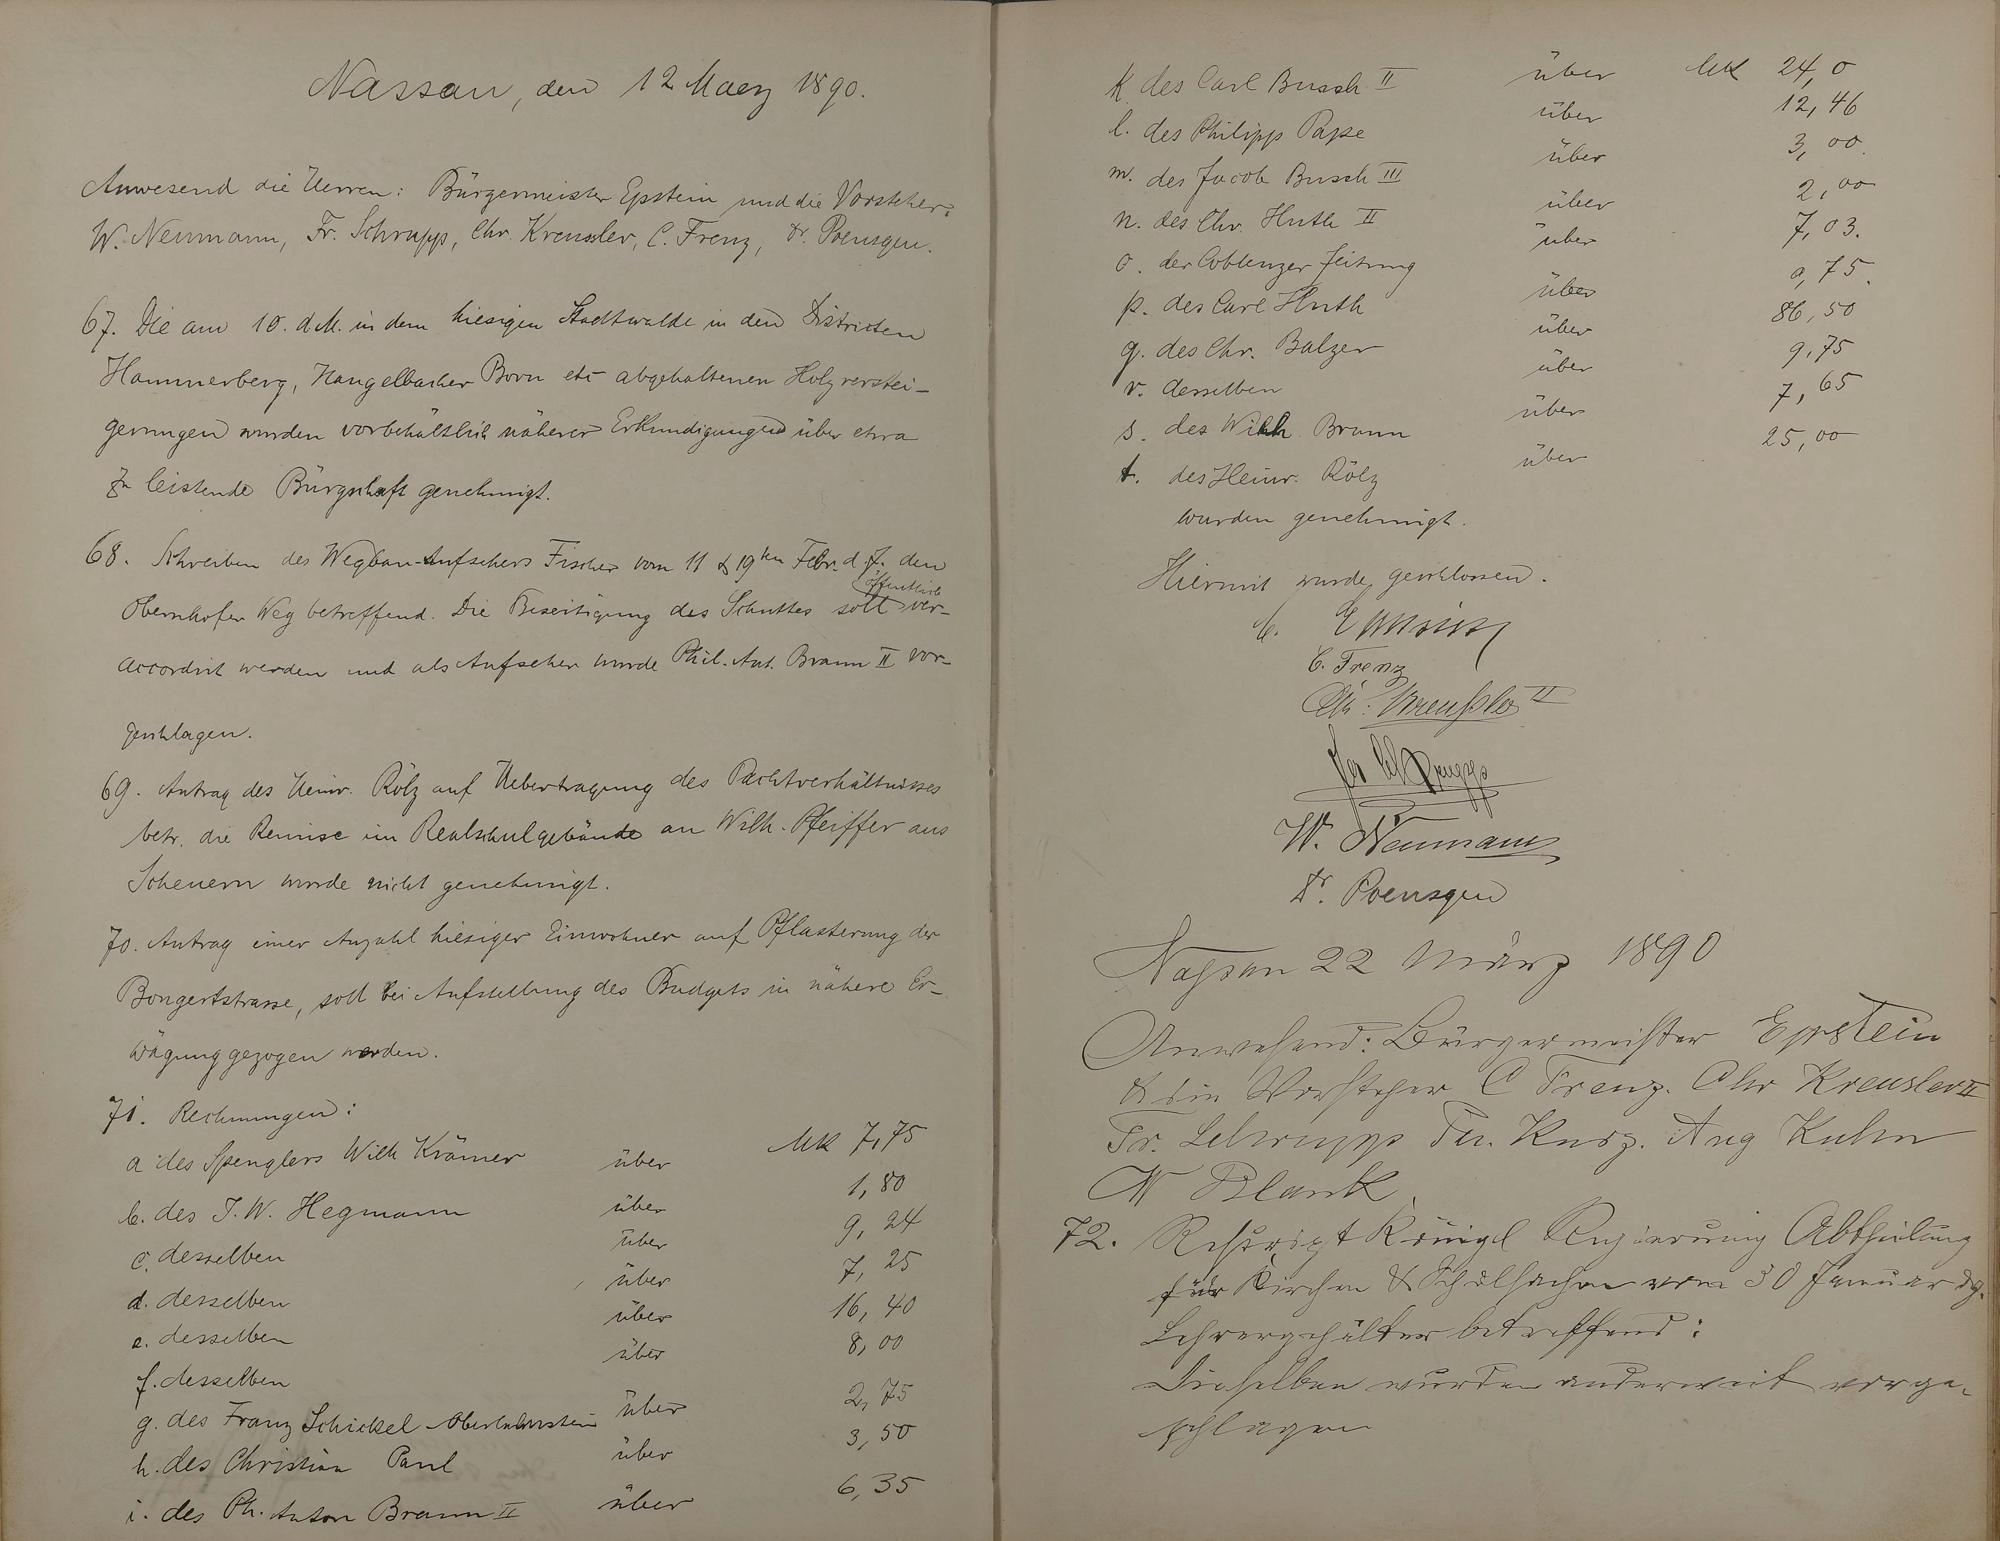 Nassau, den 12 Maerz 1890.
Anwesend die Herren: Bürgermeister Epstein und die Vorsteher:
W. Neumann, Fr. Schrupp, Chr. Kreusler, C. Frenz, Dr. Poensgen.
67. Die am 10. d.M. in dem hiesigen Stadtwalde in den Districten
Hammerberg, Hangelbacher Born etc abgehaltenen Holzverstei-
gerungen wurden vorbehältlich näherer Erkundigungen über etwa
zu leistende Bürgschaft genehmigt.
68. Schreiben des Wegbau-Aufsehers Fischer vom 11 & 19ten Febr. d. J. den
Obernhofer Weg betreffend. Die Beseitigung des Schuttes soll öffentlich ver-
accordirt werden und als Aufseher wurde Phil. Ant. Braun II vor-
geschlagen.
69. Antrag des Heinr. Rölz auf Uebertragung des Pachtverhältnisses
betr. die Remise im Realschulgebäude an Wilh. Pfeiffer aus
Scheuern wurde nicht genehmigt.
70. Antrag einer Anzahl hiesiger Einwohner auf Pflasterung der
Bongertstrasse, soll bei Aufstellung des Budgets in nähere Er-
wägung gezogen werden.
71. Rechnungen:
a des Spenglers Wilh Krämer über Mk 7,75
b. des J. W. Hegmann über 1,80
c. desselben über 9,24
d. desselben über 7,25
e. desselben über 16,40
f. desselben über 8,00
g. des Franz Schickel Oberlahnstein über 2,75
h. des Christian Paul über 3,50
i. des Ph. Anton Braun II über 6,35
k. des Carl Busch II über Mk 24,0
l. des Philipp Pape über 12,46
m. des Jacob Busch III über 3,00.
n. des Chr. Huth II über 2,00
o. der Coblenzer Zeitung über 7,03.
p. des Carl Huth über 0,75.
q. des Chr. Balzer über 86,50
r. desselben über 9,75
s. des Wilh. Braun über 7,65
t. des Heinr. Rölz über 25,00
wurden genehmigt.
Hiermit wurde geschlossen.
Epstein
C. Frenz
Chr: Kreußler II
Schrupp
W. Neumann
Dr. Poensgen
Naßau 22 März 1890
Anwesend: Bürgermeister Epstein
& die Vorsteher C Frenz. Chr Kreusler II
Fr. Schrupp Kurz. Aug Kuhn
W Blank
72. Rescript Königl Regierung Abtheilung
für Kirchen & Schulsachen vom 30 Januar
Lehrergehälter betreffend:
Dieselben wurden anderweit vorge-
schlagen